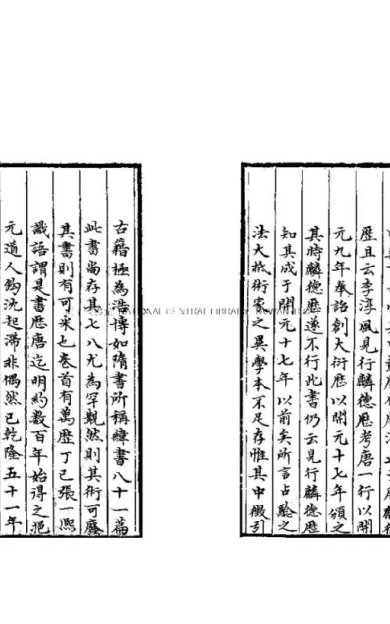 歷且云李淳風見行麟德歷考唐一行以開
元九年奉詔創大衍歷以開元十七年頒之
其時麟德歷遂不行此書仍云見行麟德歷
知其成于開元十七年以前矣所言占驗之
法大抵術家之異學本不足存惟其中徵引
古籍極為浩博如隋書所稱緯書八十一篇
此書尚存其七八尤為罕覯然則其術可廢
其書則有可采也卷首有萬歷丁巳張一熙
識語謂是書歷唐迄明約數百年始得之挹
元道人鈎沈起滯非偶然已乾隆五十一年
NATIONAL CENTRAL LIBRARY